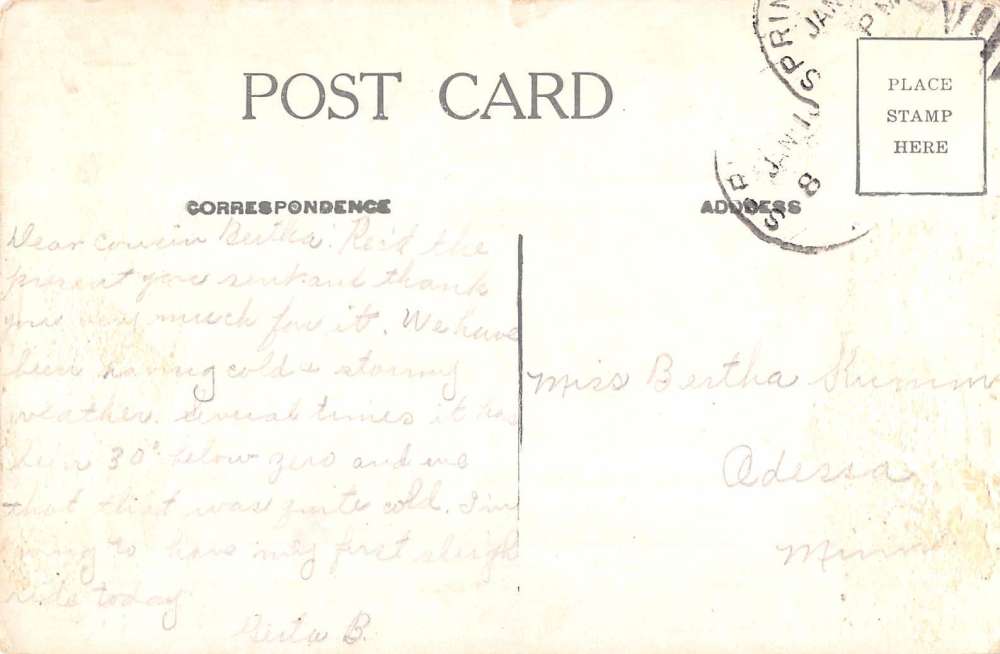 POST CARD
PLACE
STAMP
HERE
SPRIN
JAN
PM
JAN
8
CORRESPONDENCE
ADDRESS
Dear cousin Bertha: Rec'd the
present you sent and thank
you very much for it. We have
been having cold & stormy
weather. Several times it has
been 30° below zero and
that was quite cold. I'm
going to have my first sleigh
ride today
B.
Miss Bertha Kumm
Odessa
Minn.